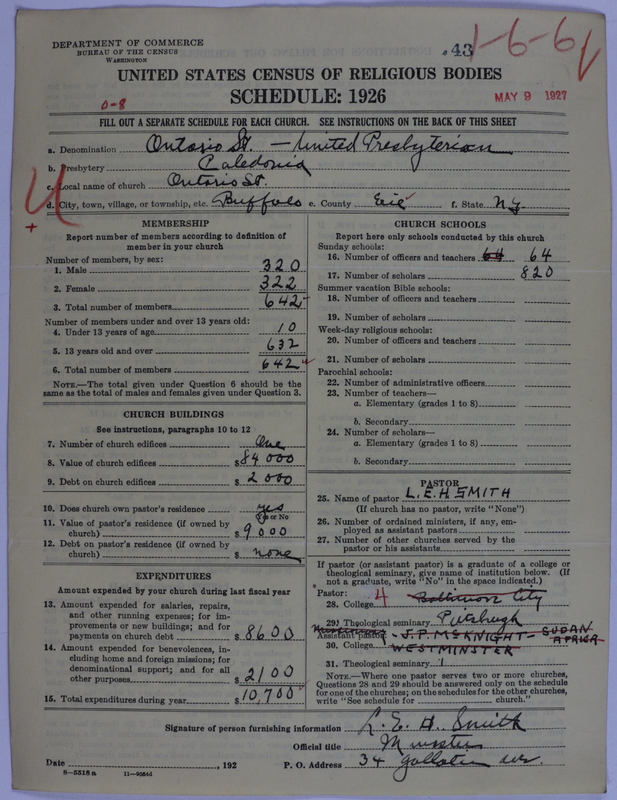 DEPARTMENT OF COMMERCE
BUREAU OF THE CENSUS
WASHINGTON
43
1-6-6
UNITED STATES CENSUS OF RELIGIOUS BODIES
SCHEDULE: 1926
0-8
MAY 9 1927
FILL OUT A SEPARATE SCHEDULE FOR EACH CHURCH. SEE INSTRUCTIONS ON THE BACK OF THIS SHEET
a. Denomination Ontario St. - United Presbyterian
b. Presbytery Caledonia
c. Local name of church Ontario St.
d. City, town, village, or township, etc. Buffalo e. County Erie f. State N.Y.
MEMBERSHIP
Report number of members according to definition of
member in your church
Number of members, by sex:
1. Male 320
2. Female 322
3. Total number of members 642
Number of members under and over 13 years old:
4. Under 13 years of age 10
5. 13 years old and over 632
6. Total number of members 642
NOTE.—The total given under Question 6 should be the
same as the total of males and females given under Question 3.
CHURCH BUILDINGS
See instructions, paragraphs 10 to 12
7. Number of church edifices One
8. Value of church edifices $84000
9. Debt on church edifices $2000
10. Does church own pastor's residence yes
Yes or No
11. Value of pastor's residence (if owned by
church) $9000
12. Debt on pastor's residence (if owned by
church) $ none
EXPENDITURES
Amount expended by your church during last fiscal year
13. Amount expended for salaries, repairs,
and other running expenses; for im-
provements or new buildings; and for
payments on church debt $8600
14. Amount expended for benevolences, in-
cluding home and foreign missions; for
denominational support; and for all
other purposes $2100
15. Total expenditures during year $10,700
CHURCH SCHOOLS
Report here only schools conducted by this church
Sunday schools:
16. Number of officers and teachers 64 64
17. Number of scholars 820
Summer vacation Bible schools:
18. Number of officers and teachers
19. Number of scholars
Week-day religious schools:
20. Number of officers and teachers
21. Number of scholars
Parochial schools:
22. Number of administrative officers
23. Number of teachers—
a. Elementary (grades 1 to 8)
b. Secondary
24. Number of scholars—
a. Elementary (grades 1 to 8)
b. Secondary
PASTOR
25. Name of pastor L.E.H. SMITH
(If church has no pastor, write "None")
26. Number of ordained ministers, if any, em-
ployed as assistant pastors
27. Number of other churches served by the
pastor or his assistants
If pastor (or assistant pastor) is a graduate of a college or
theological seminary, give name of institution below. (If
not a graduate, write "No" in the space indicated.)
Pastor:
28. College 4 Baltimore City
29. Theological seminary Pittsburgh
Assistant pastor - J.P. McKNIGHT - SUDAN AFRICA
30. College WESTMINSTER
31. Theological seminary
NOTE.—Where one pastor serves two or more churches,
Questions 28 and 29 should be answered only on the schedule
for one of the churches; on the schedules for the other churches,
write "See schedule for church."
Signature of person furnishing information L. E. H. Smith
Official title Minister
Date , 192 P. O. Address 34 Gallatin Ave.
8—5518 a 11—9554d